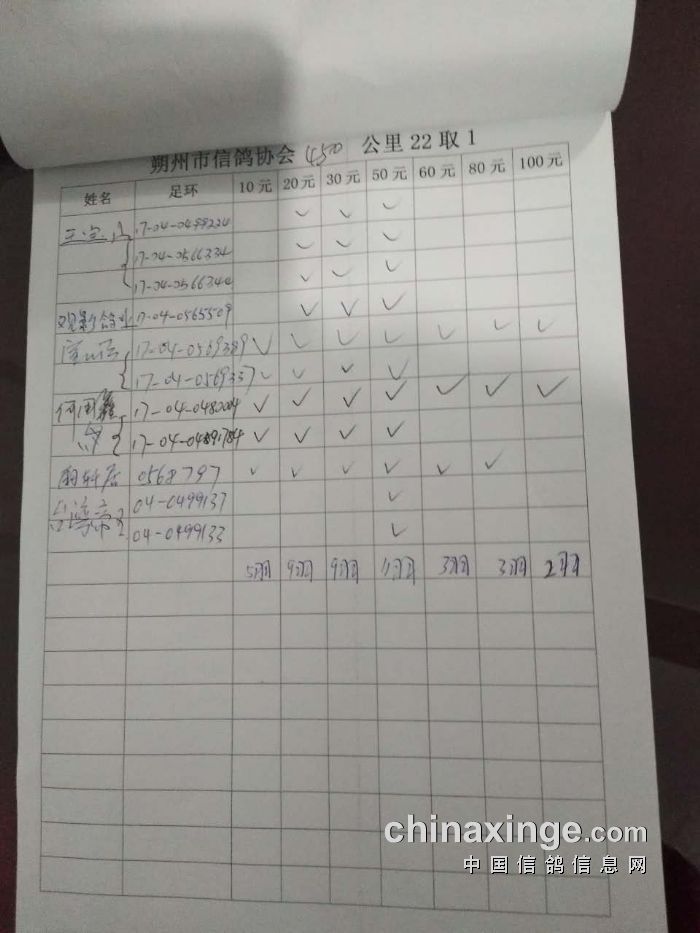 朔州市信鸽协会 450 公里 22 取 1
姓名 足环 10 元 20 元 30 元 50 元 60 元 80 元 100 元
17-04-0499224 ✓ ✓ ✓
17-04-0566334 ✓ ✓ ✓
17-04-0566344 ✓ ✓ ✓
17-04-0565509 ✓ ✓ ✓
17-04-0569389 ✓ ✓ ✓ ✓ ✓ ✓ ✓
17-04-0569337 ✓ ✓ ✓ ✓
何国 ✓ ✓ ✓ ✓ ✓ ✓ ✓
✓ ✓ ✓ ✓
翔轩居 0568797 ✓ ✓ ✓ ✓ ✓ ✓
04-0499137 ✓
04-0499133 ✓
5羽 9羽 9羽 11羽 3羽 3羽 2羽
chinaxinge.com
中国信鸽信息网